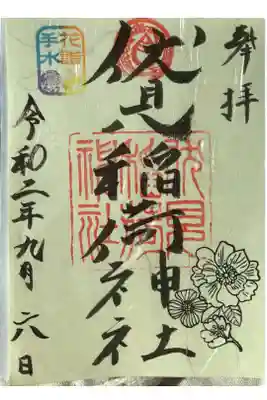 奉拝
伏見稲荷神社
伏見
稲荷
神社
令和二年九月六日